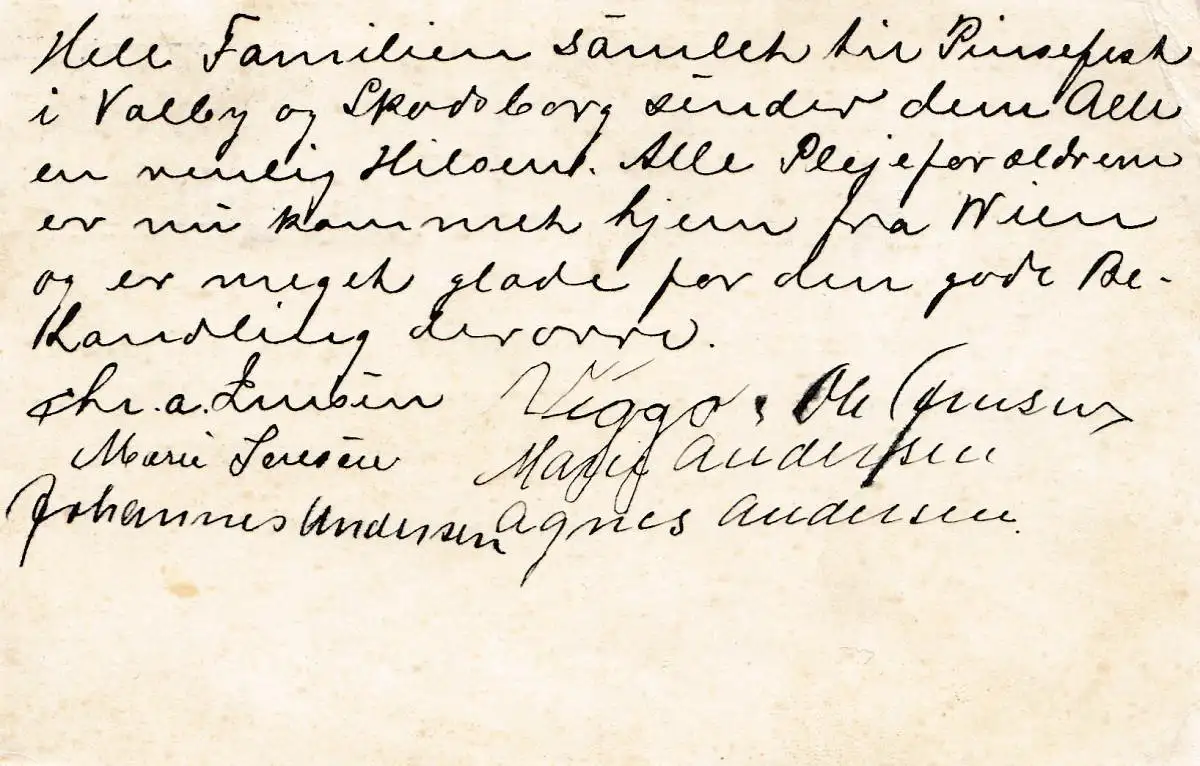 Hele Familien samlet til Pinsefest
i Valby og Skodsborg sender dem Alle
en venlig Hilsen. Alle Plejeforældrene
er nu kommet hjem fra Wien
og er meget glade for den gode Be-
handling derovre.
Chr. A. Jensen Viggo, Ole Jensen
Marie Jensen Marie Andersen
Johannes Andersen Agnes Andersen.